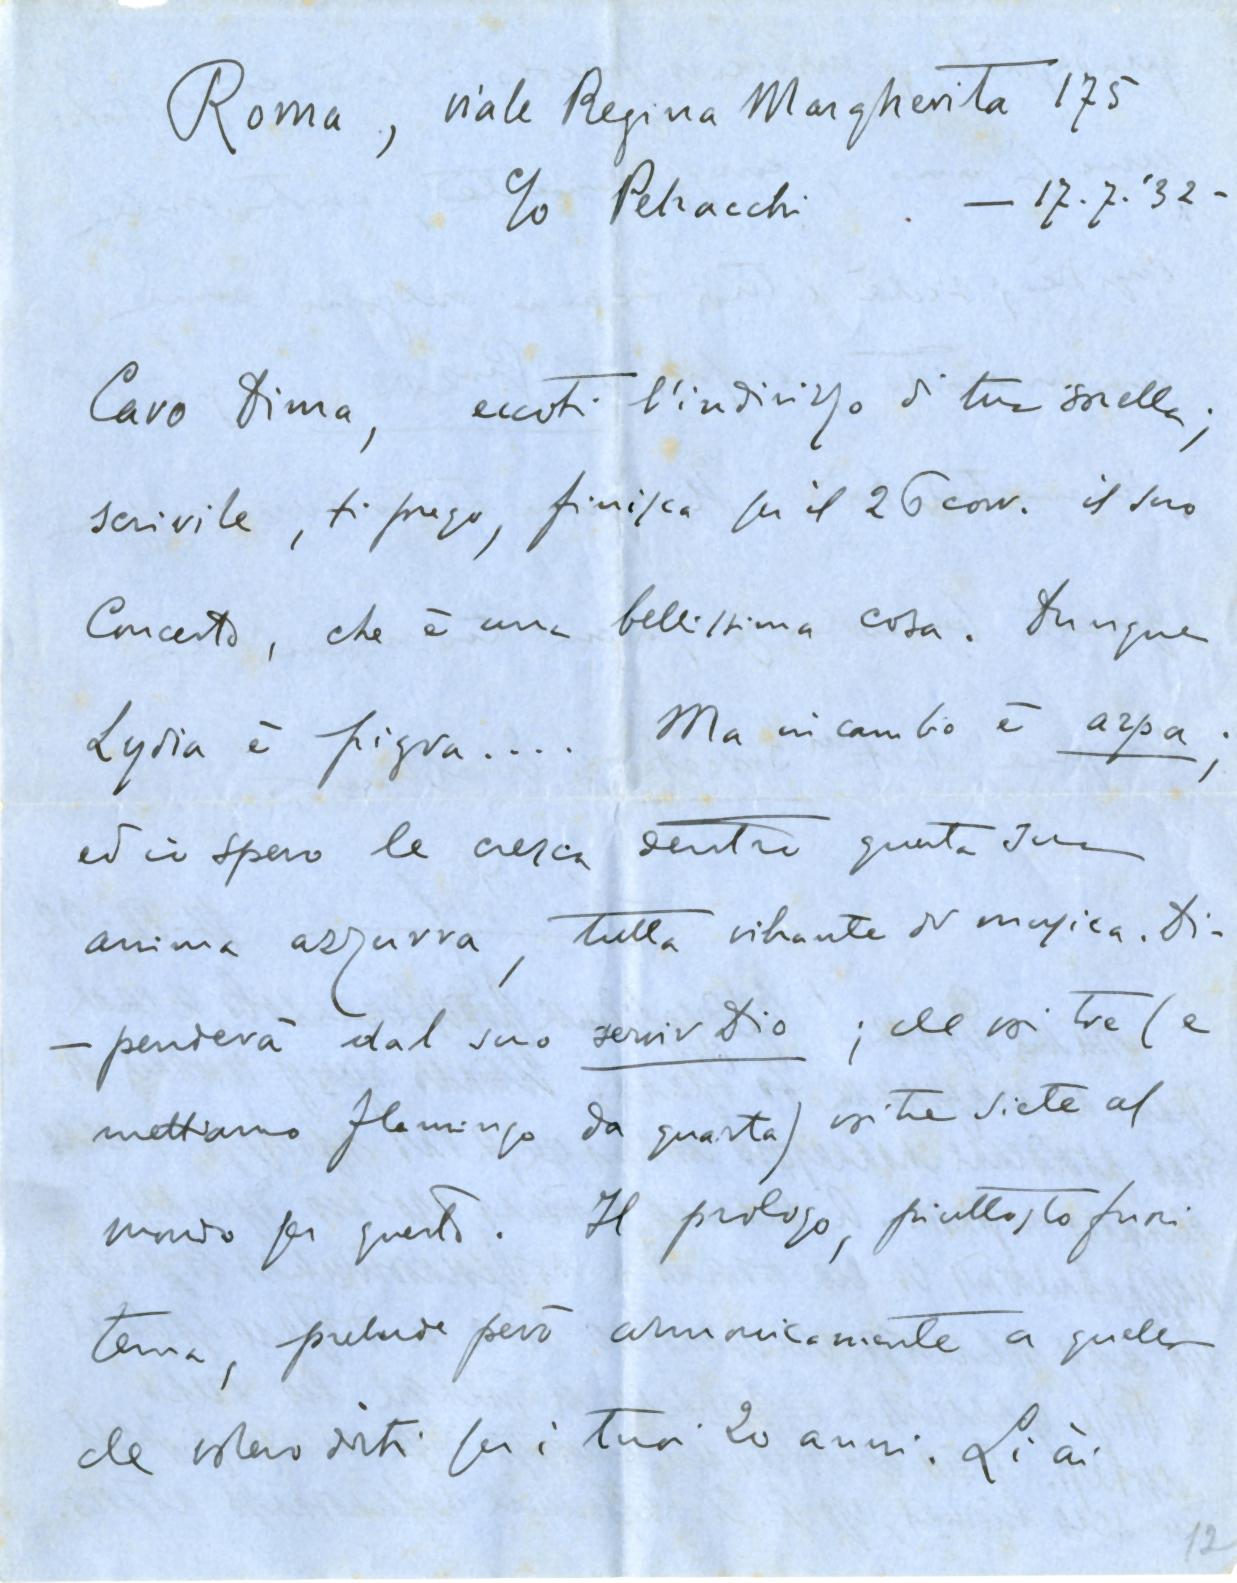 Roma, viale Regina Margherita 175
c/o Petracchi — 17.7.'32 -
Caro Dima, eccoti l'indirizzo di tua sorella;
scrivile, ti prego, finisca per il 26 corr. il suo
Concerto, che è una bellissima cosa. Dunque
Lydia è pigra.... Ma in cambio è arpa;
ed io spero le cresca dentro questa sua
anima azzurra, tutta vibrante di musica. Di-
- penderà dal suo servir Dio; chè voi tre (e
mettiamo Flamingo da quarta) voi tre siete al
mondo per questo. Il prologo, piuttosto fuori
tema, prelude però armonicamente a quello
che volevo dirti per i tuoi 20 anni. Li ài
12